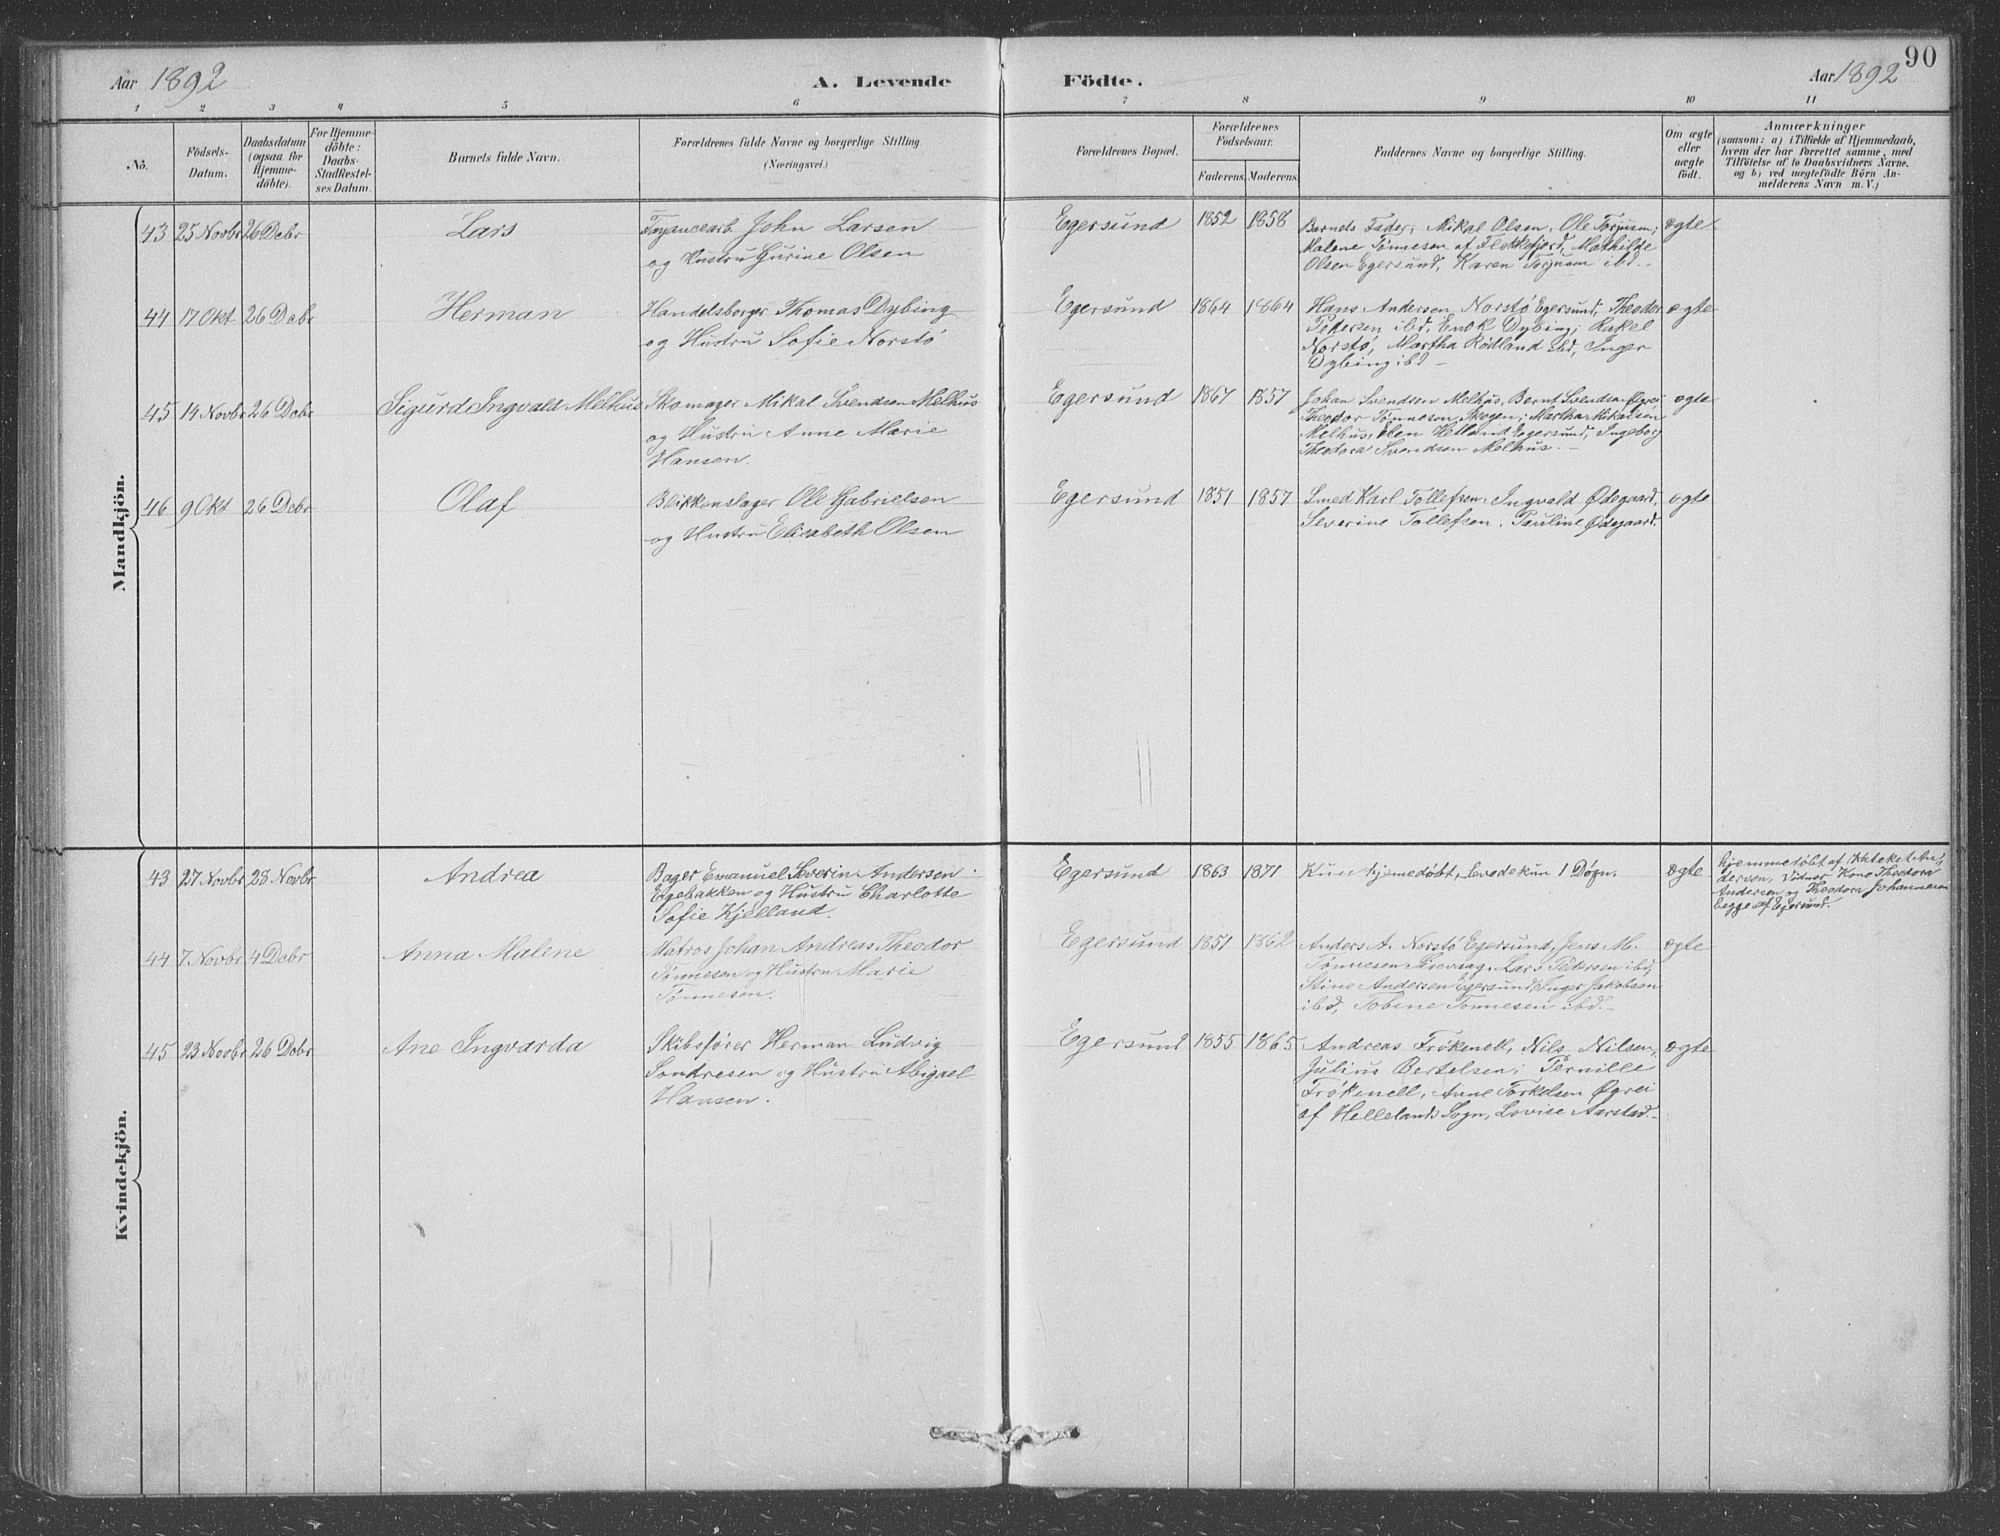 90
Aar 1892
A. Levende Födte.
Aar 1892
1 2 3 4 5 6 7 8 9 10 11
No.
Födsels-
Datum.
Daabsdatum
(ogsaa för
Hjemme-
döbte).
For Hjemme-
döbte:
Daabs-
Stadfestel-
ses Datum.
Barnets fulde Navn.
Forældrenes fulde Navne og borgerlige Stilling.
(Næringsvei.)
Forældrenes Bopæl.
Forældrenes
Födselsaar.
Faderens. Moderens.
Faddernes Navne og borgerlige Stilling.
Om ægte
eller
uægte
födt.
Anmærkninger
(saasom: a) i Tilfælde af Hjemmedaab,
hvem der har forrettet samme, med
Tilföielse af to Daabsvidners Navne.
og b) ved uægtefödte Börn An-
melderens Navn m. V.)
Mandkjön.
43 25 Novbr 26 Debr
Lars
John Larsen
og Hustru Gurine Olsen
Egersund 1852 1858
Barnets Fader, Mikal Olsen, Ole Torjusen;
Malene Tønnesen af Flekkefjord, Mathilde
Olsen Egersund, Karen Torjusen ibd.-
ægte
44 17 Okt 26 Debr
Herman
Handelsborger Thomas Dybing
og Hustru Sofie Norstø
Egersund 1864 1864
Hans Andersen Norstø Egersund, Theodor
Pedersen ibd, Enok Dybing; Rakel
Norstø, Martha Rødland ibd, Inger
Dybing ibd -
ægte
45 14 Novbr 26 Debr
Sigurd Ingvald Melhus
Skomager Mikal Svendsen Melhus
og Hustru Anne Marie
Hansen.
Egersund 1867 1857
Johan Svendsen Melhus, Bernt Svendsen Øgrei
Theodor Tønnesen Skogen; Martha Mikalsen
Melhus, Elen Hetland Egersund, Ingeborg
Theodora Svendsen Melhus. -
ægte
46 9 Okt 26 Debr
Olaf
Blikkenslager Ole Gabrielsen
og Hustru Elisabeth Olsen
Egersund 1851 1857
Smed Karl Tollefsen, Ingvald Ødegaard,
Severine Tollefsen, Pauline Ødegaard.
ægte
Kvindekjön.
43 27 Novbr 28 Novbr
Andrea
Bager Emanuel Severin Andersen
Egebakken og Hustru Charlotte
Sofie Kjelland.
Egersund 1863 1871
Kun hjemmedøbt, levede kun 1 Døgn.
ægte
hjemmedøbt af An-
dersen, Vidner Kone Theodora
Andersen og Theodora Johannesen
begge af Egersund.
44 7 Novbr 4 Debr
Anna Malene
Matros Johan Andreas Theodor
Tønnesen og Hustru Marie
Tønnesen.
Egersund 1851 1862
Anders A. Norstø Egersund, Jens M.
Tønnesen Lars Pedersen ibd,
Stine Andersen Egersund, Inger Jakobsen
ibd, Tobine Tønnesen ibd.-
ægte
45 23 Novbr 26 Debr
Ane Ingvarda
Skibsfører Herman Ludvig
Sondresen og Hustru Abigael
Hansen.
Egersund 1855 1865
Andreas Frøkenell, Nils Nilsen,
Julius Bertelsen; Pernille
Frøkenell, Anne Torkelsen Øgrei
af Hellelands Sogn, Lovise Aarstad.-
ægte